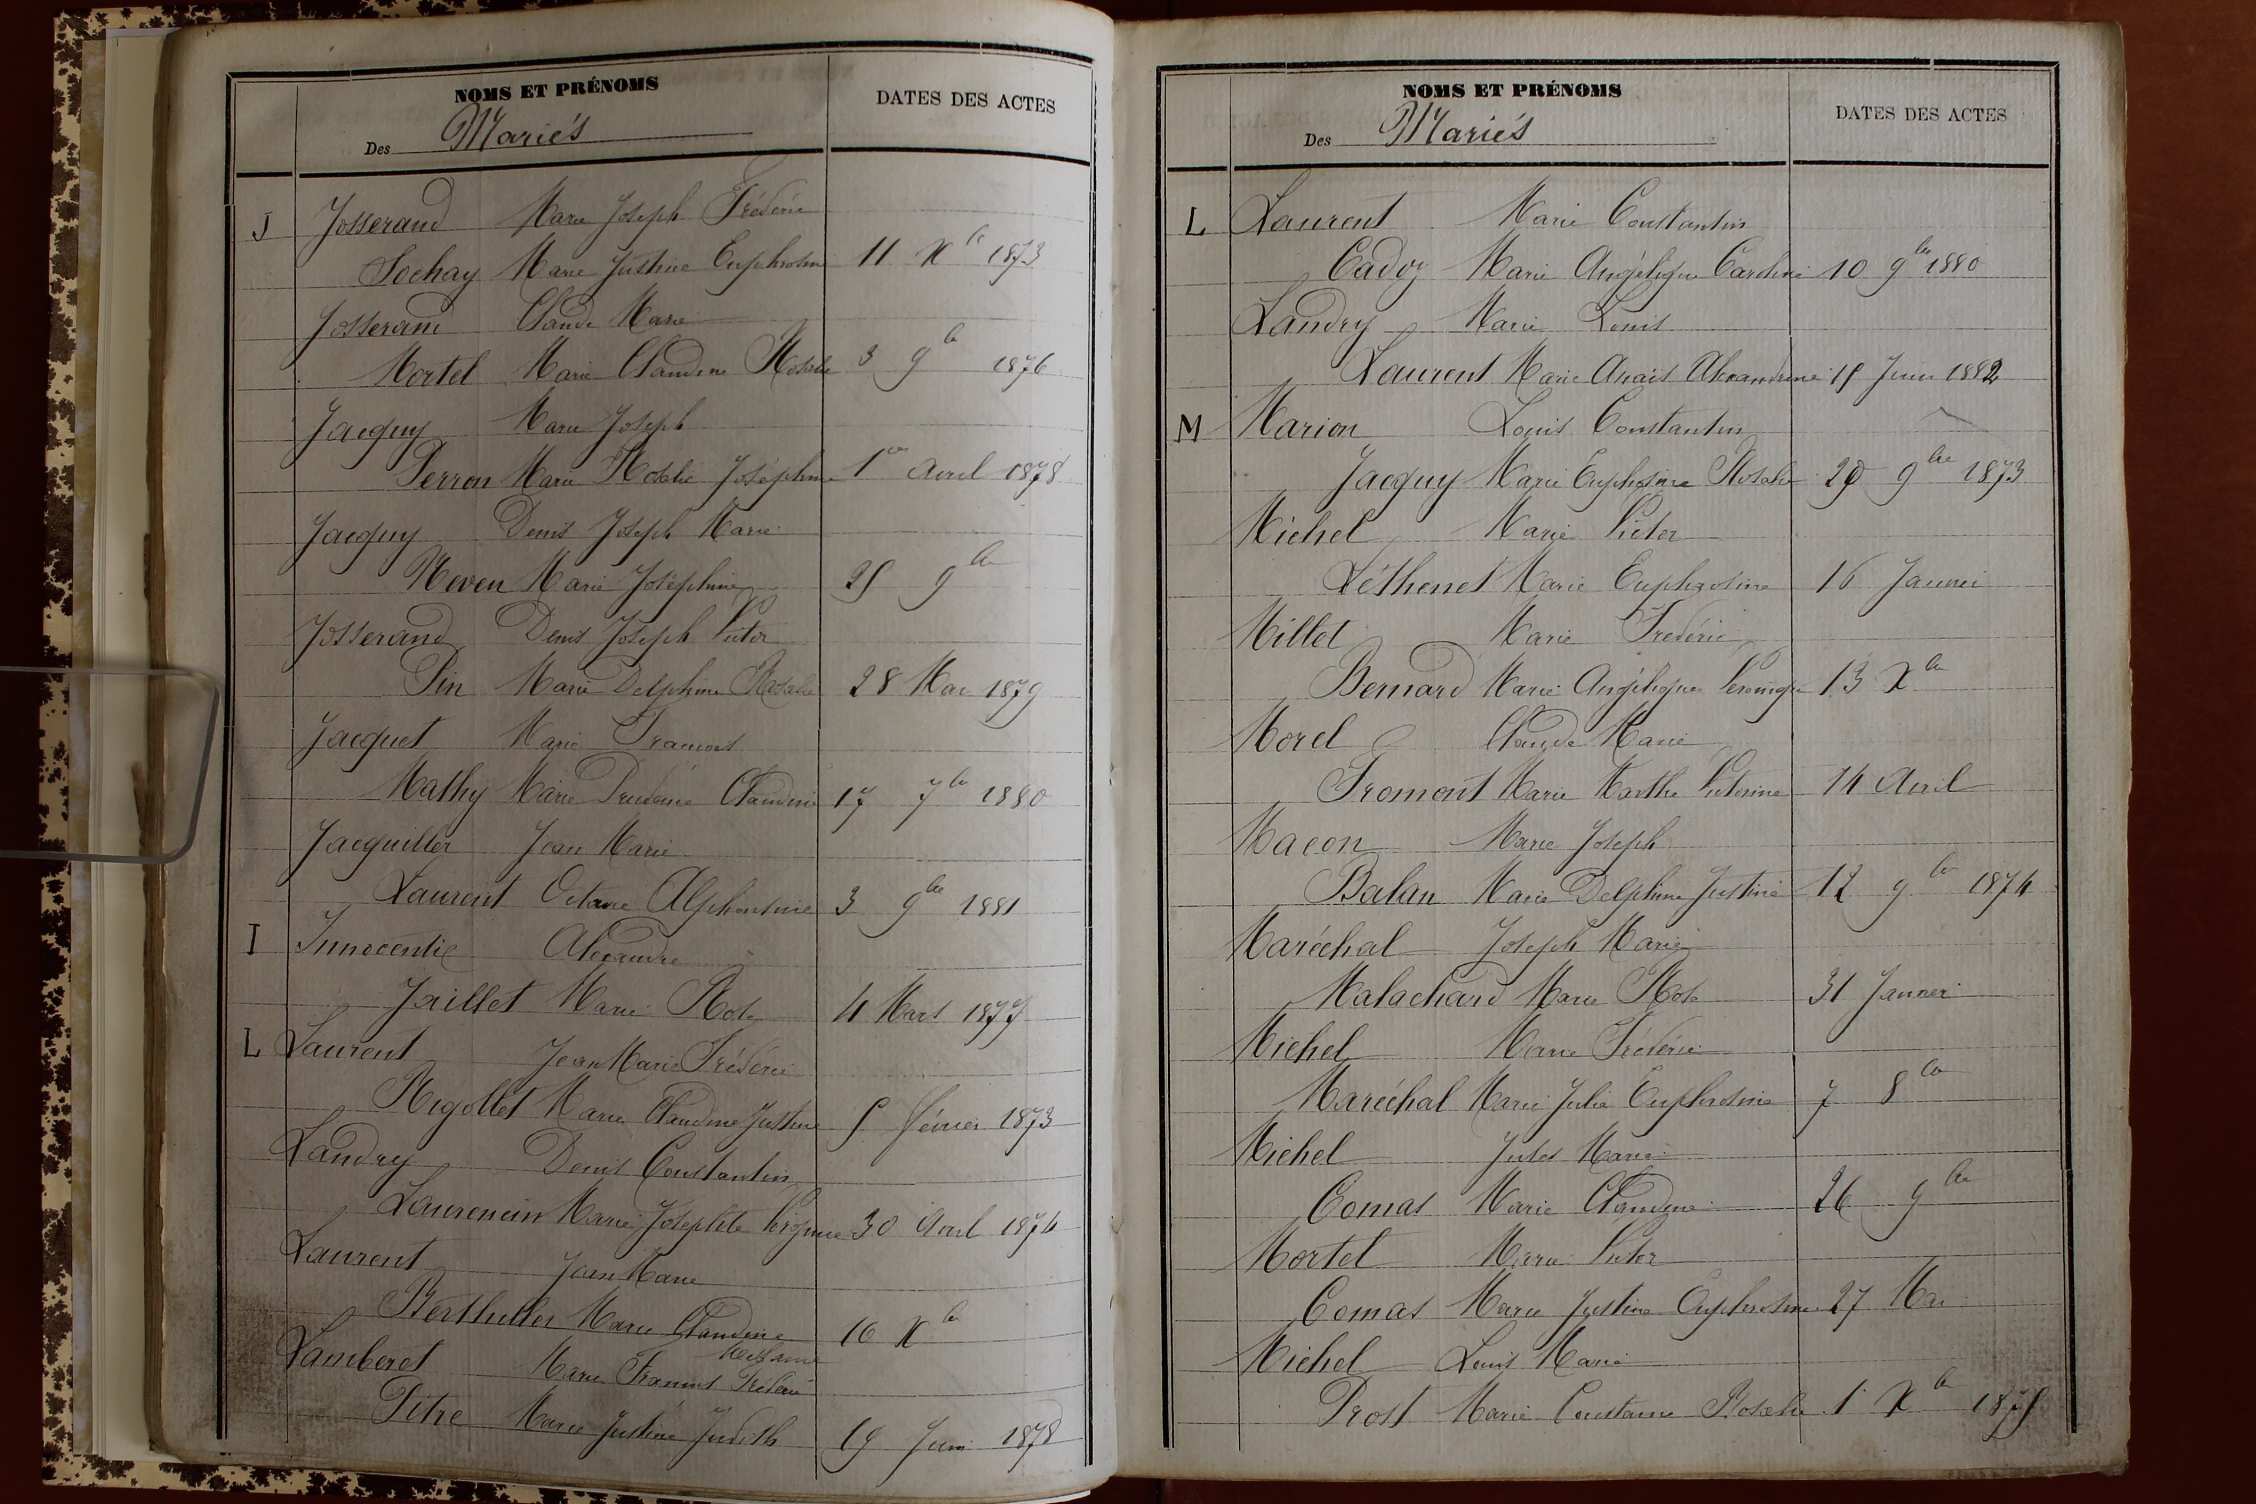 NOMS ET PRÉNOMS
DATES DES ACTES
Des Mariés
J Josserand Marie Joseph Frédéric
Sochay Marie Justine Euphrosine 11 Xbre 1873
Josserand Claude Marie
Mortel Marie Claudine Rosalie 3 9bre 1876
Jacquy Marie Joseph
Perron Marie Rosalie Joséphine 1er Avril 1878
Jacquy Denis Joseph Marie
Neven Marie Joséphine 25 9bre
Josserand Denis Joseph Victor
Pin Marie Delphine Rosalie 28 Mai 1879
Jacquet Marie François
Mathy Marie Claudine 17 7bre 1880
Jacquiller Jean Marie
Laurent Octavie Alphonsine 3 9bre 1881
I Innocentie Alexandre
Jaillet Marie Rose 4 Mars 1877
L Laurent Jean Marie Frédéric
Rigollet Marie Claudine Justine 5 février 1873
Landry Denis Constantin
Laurencin Marie Josephte 30 Avril 1874
Laurent Jean Marie
Berthiller Marie Claudine 10 Xbre
Lamberet Marie François
Pitre Marie Justine Judith 19 Juin 1878
NOMS ET PRÉNOMS
DATES DES ACTES
Des Mariés
L Laurent Marie Constantin
Cadoz Marie Angélique Caroline 10 9bre 1880
Landry Marie Louis
Laurent Marie Anaïs Alexandrine 15 Juin 1882
M Marion Louis Constantin
Jacquy Marie Euphrosine Rosalie 29 9bre 1873
Michel Marie Victor
Léthenet Marie Euphrosine 16 Janvier
Millet Marie Frédéric
Bernard Marie Angélique Véronique 13 Xbre
Morel Claude Marie
Fromont Marie Marthe Victorine 14 Avril
Macon Marie Joseph
Balan Marie Delphine Justine 12 9bre 1874
Maréchal Joseph Marie
Malachard Marie Rose 31 Janvier
Michel Marie Frédéric
Maréchal Marie Julie Euphrosine 7 8bre
Michel Jules Marie
Comas Marie Claudine 26 9bre
Mortel Marie Victor
Comas Marie Justine Euphrosine 27 Mai
Michel Louis Marie
Prost Marie Constance Rosalie 1 Xbre 1875